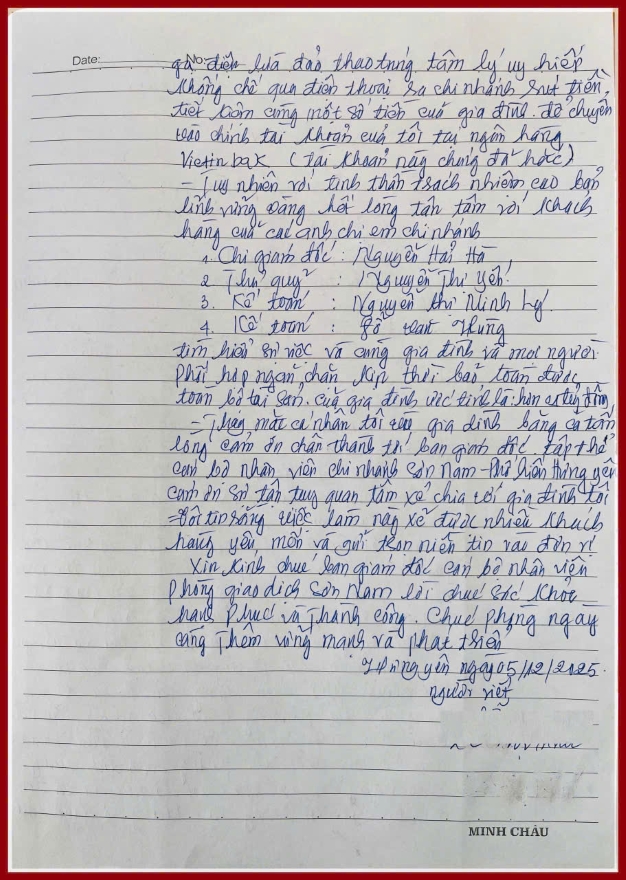 Date: No:
gọi điện lừa đảo thao túng tâm lý uy hiếp
khống chế qua điện thoại ra chi nhánh rút tiền,
tiết kiệm cùng một số tiền của gia đình. để chuyển
vào chính tài khoản của tôi tại ngân hàng
Viettin bak (tài khoản này chúng đã hack)
- Tuy nhiên với tinh thần trách nhiệm cao bản
lĩnh vững vàng hết lòng tận tâm với khách
hàng của các anh chị em chi nhánh
1. Chị giám đốc : Nguyễn Hải Hà
2 Thủ quỹ : Nguyễn Thị Yến.
3. Kế toán : Nguyễn thị Minh Lý
4. Kế toán : Đỗ văn Hùng
tìm hiểu sự việc và cùng gia đình và mọi người
phối hợp ngăn chặn kịp thời bảo toàn được
toàn bộ tài sản. của gia đình ước tính là: hơn tỷ đồng
- Thay mặt cá nhân tôi gia đình bằng cả tấm
lòng cảm ơn chân thành tới ban giám đốc tập thể
cán bộ nhân viên chi nhánh Sơn Nam - Phố hiến Hưng yên
cảm ơn sự tận tụy quan tâm xẻ chia với gia đình tôi
- Tôi tin rằng việc làm này xẽ được nhiều khách
hàng yêu mến và gửi trọn niềm tin vào đơn vị
Xin kính chúc ban giám đốc cán bộ nhân viên
phòng giao dịch Sơn Nam lời chúc sức khỏe
hạnh phúc và Thành công. Chúc phòng ngày
càng Thêm vững mạnh và phát triển
Hưng yên ngày 05/12/2025.
người viết
MINH CHÂU